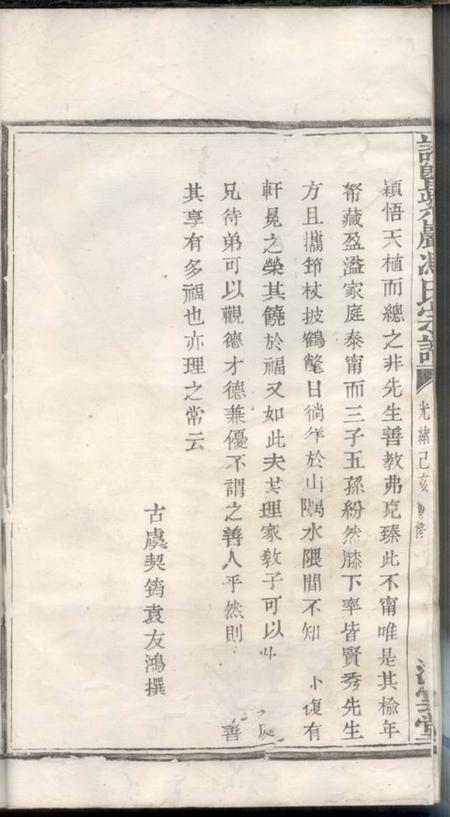 氏宗譜
光緒己亥重修
堂
穎悟天植而總之非先生善教弗克臻此不甯唯是其榆年
帑藏盈溢家庭泰甯而三子五孫紛然膝下率皆賢秀先生
方且攜笻杖披鶴氅日徜徉於山隅水隈間不知 復有
軒冕之榮其饒於福又如此夫其理家教子可以
兄待弟可以觀德才德兼優不謂之善人乎然則 善
其享有多福也亦理之常云
古虞契筠袁友鴻撰